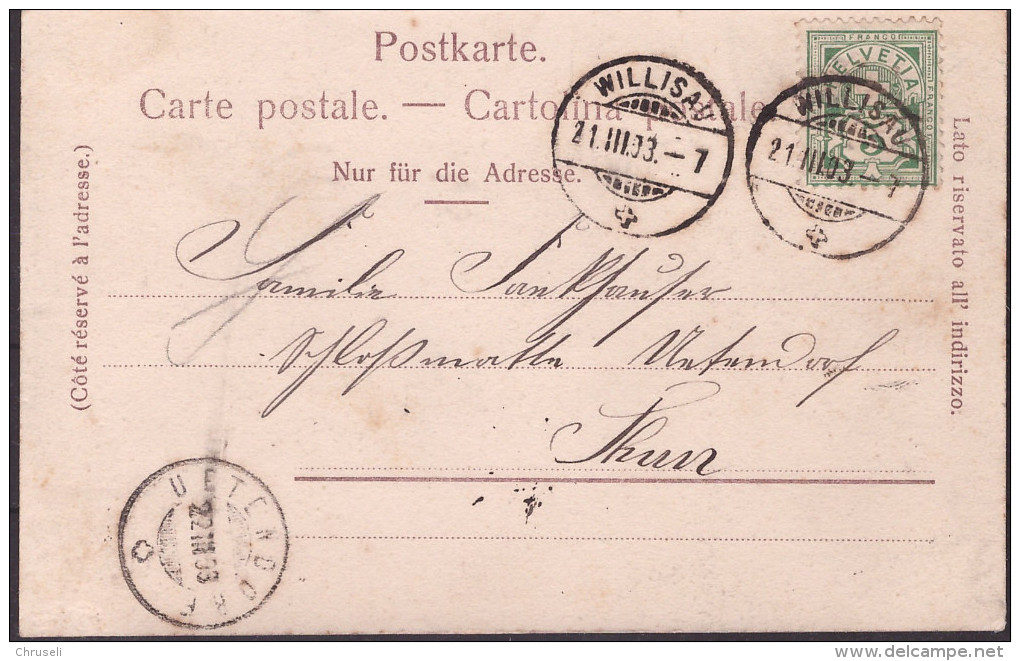 Postkarte.
Carte postale. — Cartolina postale.
Nur für die Adresse.
(Côté réservé à l'adresse.)
Lato riservato all' indirizzo.
FRANCO
HELVETIA
FRANCO
WILLISAU
21.III.03.–7
WILLISAU
21.III.03.–7
Familie Fankhauser
Schloßmatte Uetendorf
Thun
UETENDORF
22.III.03
Chruseli
delcampe.net